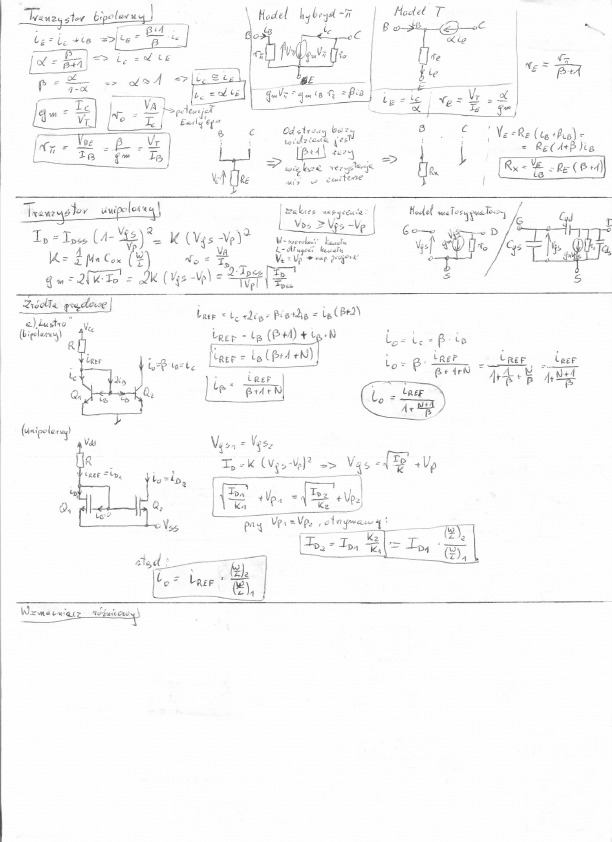 Tranzystor bipolarny
i_E = i_C + i_B ⇒ i_E = (β+1)/β · i_C
α = β/(β+1) ⇔ i_C = α i_E
β = α/(1-α) ⇒ α ≈ 1 ⇔ i_C ≅ i_E
i_C = α i_E
g_m = I_C/V_T
r_o = V_A/I_C
potencjał Early'ego
r_π = V_BE/I_B = β/g_m = V_T/I_B
Model hybryd-π
B i_B i_C C
r_π V_π g_m V_π r_o
E
g_m V_π = g_m i_B r_π = β i_B
Model T
B i_B α i_E C
r_e
i_E
E
i_E = i_C/α r_E = V_T/I_E = α/g_m
r_E = r_π/(β+1)
B C
R_E
⇒
Od strony bazy
widziana jest
(β+1) razy
większa rezystancja
niż w emiterze
⇒
B C
R_x
V_E = R_E (i_B + β i_B) =
= R_E (1+β) i_B
R_x = V_E/i_B = R_E (β+1)
Tranzystor unipolarny
I_D = I_DSS (1 - V_gs/V_p)² = K (V_gs - V_p)²
K = 1/2 μn Cox (W/L) r_o = V_A/I_D
g_m = 2√(K·I_D) = 2K (V_gs - V_p) = 2·I_DSS/|V_p| √(I_D/I_DSS)
zakres nasycenia:
V_DS ≥ V_gs - V_p
W - szerokość kanału
L - długość kanału
V_t = V_p
Model małosygnałowy
G D
V_gs r_o
S
G C_gd D
C_gs V_gs
S
Źródła prądowe
a) "Lustro"
(bipolarny)
V_CC
R
i_REF
i_C 2i_B i_o = β i_B = i_C
i_B i_B
Q_1 Q_2
i_REF = i_C + 2i_B = βi_B + 2i_B = i_B (β+2)
i_REF = i_B (β+1) + i_B · N
i_REF = i_B (β+1+N)
i_B = i_REF/(β+1+N)
i_o = i_C = β · i_B
i_o = β · i_REF/(β+1+N) = i_REF/(1 + 1/β + N/β) = i_REF/(1 + (N+1)/β)
i_o = i_REF/(1 + (N+1)/β)
(unipolarny)
R
i_REF = i_D1
i_o = i_D2
Q_1 Q_2
V_SS
V_gs1 = V_gs2
I_D = K (V_gs - V_p)² ⇒ V_gs = √(I_D/K) + V_p
√(I_D1/K_1) + V_p1 = √(I_D2/K_2) + V_p2
przy V_p1 = V_p2, otrzymamy:
I_D2 = I_D1 K_2/K_1 = I_D1 · (W/L)_2/(W/L)_1
stąd:
i_o = i_REF · (W/L)_2/(W/L)_1
Wzmacniacz różnicowy